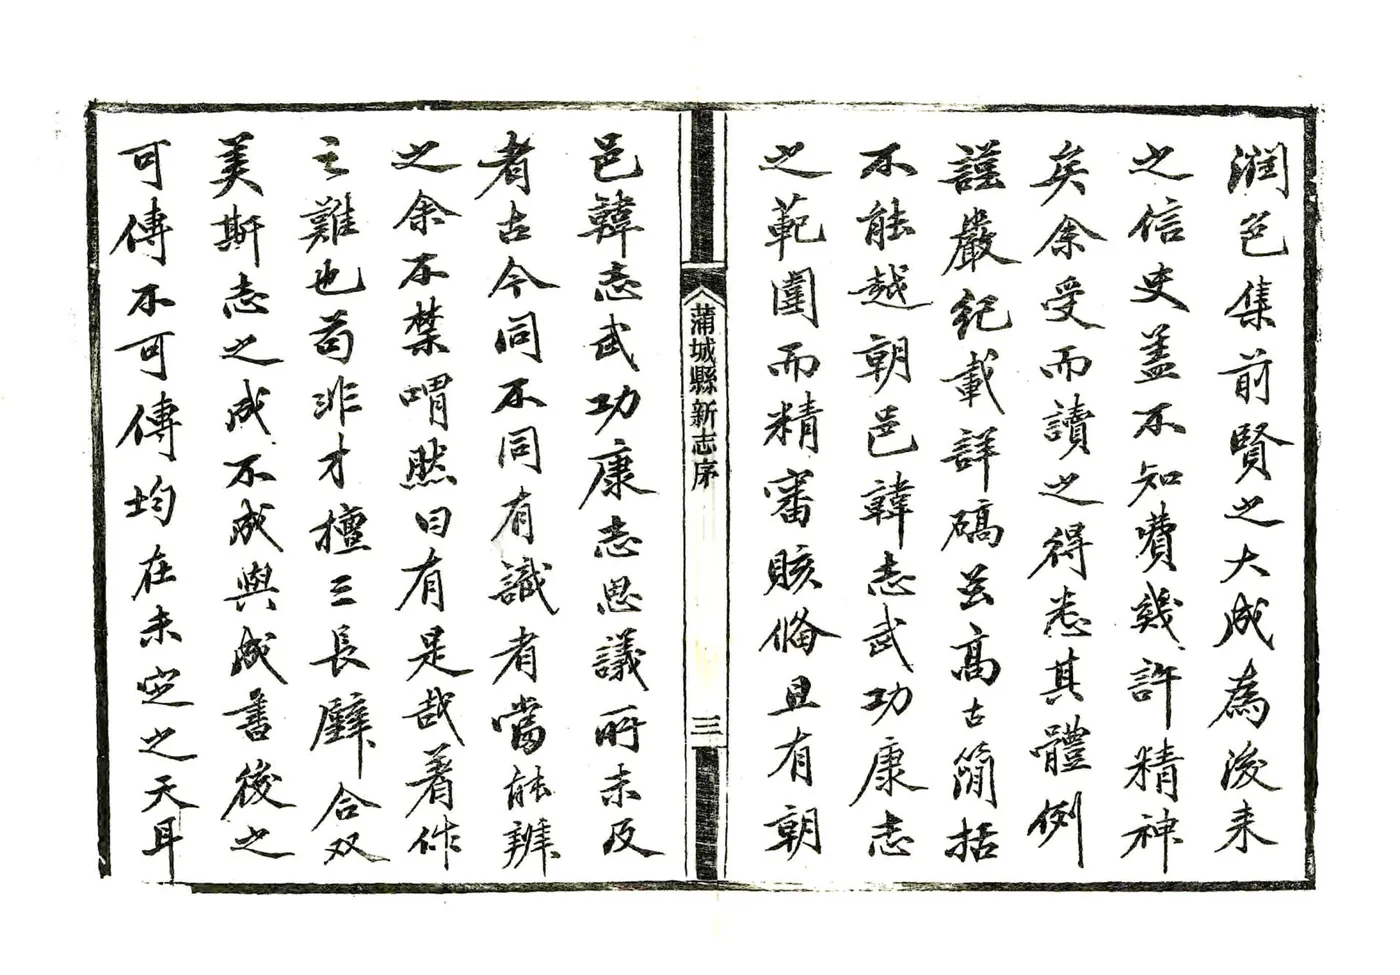 潤色集前賢之大成為後来
之信史蓋不知費幾許精神
矣余受而讀之得悉其體例
謹嚴紀載詳碻並高古簡括
不能越朝邑韓志武功康志
之範圍而精審賅備且有朝
蒲城縣新志序
三
邑韓志武功康志思議所未及
者古今同不同有識者當能辨
之余不禁喟然曰有是哉著作
之難也苟非才擅三長璧合双
美斯志之成不成與成書後之
可傳不可傳均在未定之天耳